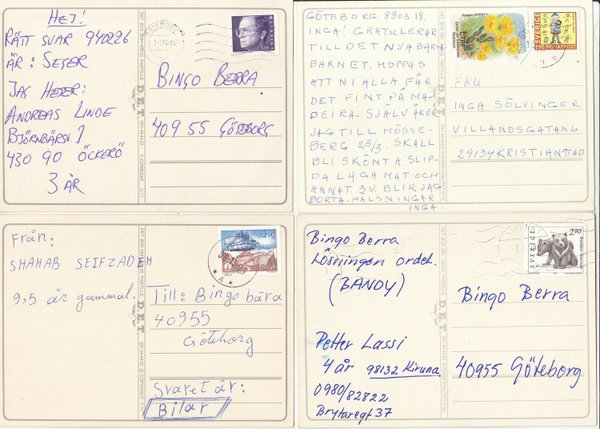 HEJ!
RÄTT SVAR 940226
ÄR: SEGER
JAG HETER:
ANDREAS LINDE
BJÖRNBÄRSV. 1
430 90 ÖCKERÖ
3 ÅR
BINGO BERRA
409 55 GÖTEBORG
GÖTEBORG 8903 18.
INGA! GRATULERAR
TILL DET NYA BARN
BARNET. HOPPAS
ATT NI ALLA FÅR
DET FINT PÅ MA-
DEIRA. SJÄLV ÅKER
JAG TILL MÖSSE-
BERG 25/3. SKALL
BLI SKÖNT A SLIP-
PA LAGA MAT OCH
ANNAT. 3V. BLIR JAG
BORTA. HÄLSNINGAR
INGA.
FRU
INGA SÖLVINGER
VILLANDSGATAN
29134 KRISTIANSTAD
SVERIGE
Från:
SHAHAB SEIFZADEH
9,5 år gammal.
Till: Bingo bära
40955
Göteborg
Svaret är:
Bilar
Bingo Berra
Lösningen ordet.
(BANDY)
Petter Lassi
4 år 98132 Kiruna
0980/82822
Brytaregt 37
SVERIGE 290
Bingo Berra
40955 Göteborg
DET
DET
DET
DET